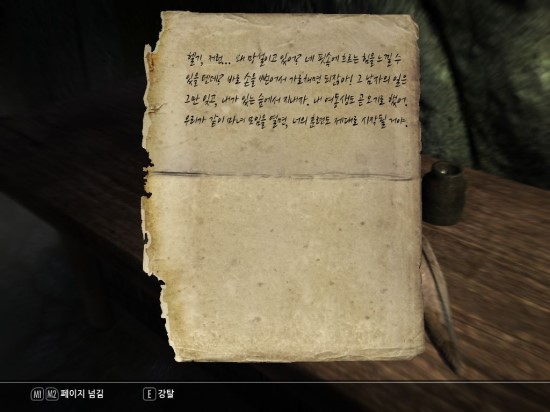 헬가, 저런... 왜 망설이고 있어? 네 핏속에 흐르는 힘을 느낄 수
있을 텐데? 바로 손을 뻗어서 가로채면 되잖아! 그 남자의 일은
그만 잊고, 내가 있는 숲에서 지내자. 내 여동생도 곧 오기로 했어.
우리가 같이 마녀 모임을 열면, 너의 훈련도 제대로 시작될 거야.
M1 M2 페이지 넘김
E 강탈